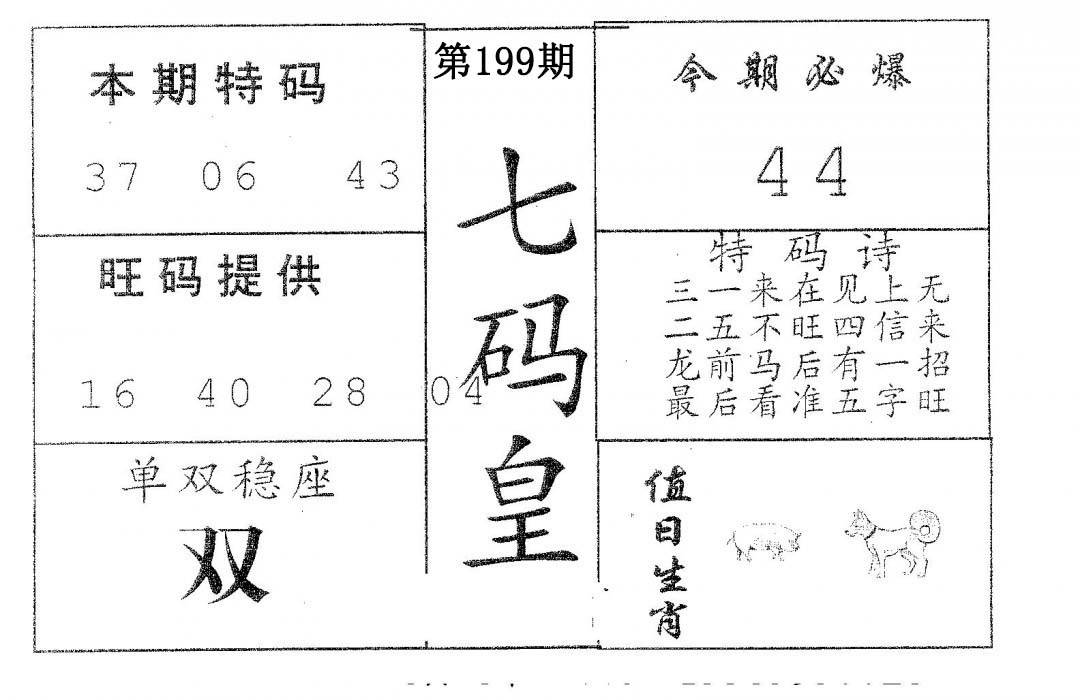 本期特码
37 06 43
旺码提供
16 40 28 04
单双稳座
双
第199期
七码皇
今期必爆
44
特码诗
三一来在见上无
二五不旺四信来
龙前马后有一招
最后看准五字旺
值日生肖